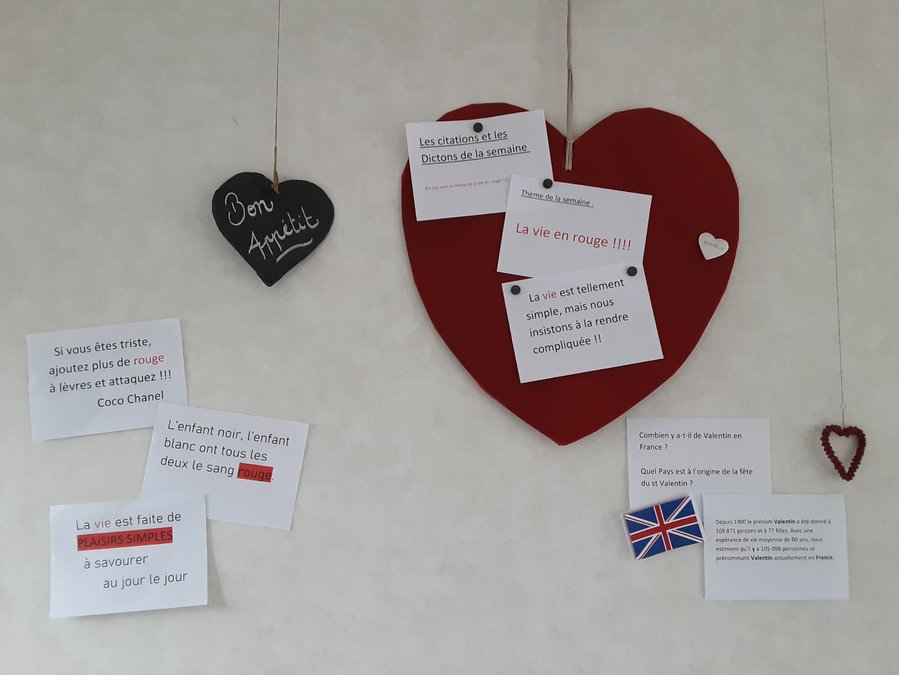 Bon
Appétit
Les citations et les
Dictons de la semaine
Thème de la semaine :
La vie en rouge !!!!
La vie est tellement
simple, mais nous
insistons à la rendre
compliquée !!
Si vous êtes triste,
ajoutez plus de rouge
à lèvres et attaquez !!!
Coco Chanel
L'enfant noir, l'enfant
blanc ont tous les
deux le sang rouge.
La vie est faite de
PLAISIRS SIMPLES
à savourer
au jour le jour
Combien y a-t-il de Valentin en
France ?
Quel Pays est à l'origine de la fête
du st Valentin ?
Depuis 1900 le prénom Valentin a été donné à
109 871 garçons et à 77 filles. Avec une
espérance de vie moyenne de 80 ans, nous
estimons qu'il y a 105 098 personnes se
prénommant Valentin actuellement en France.